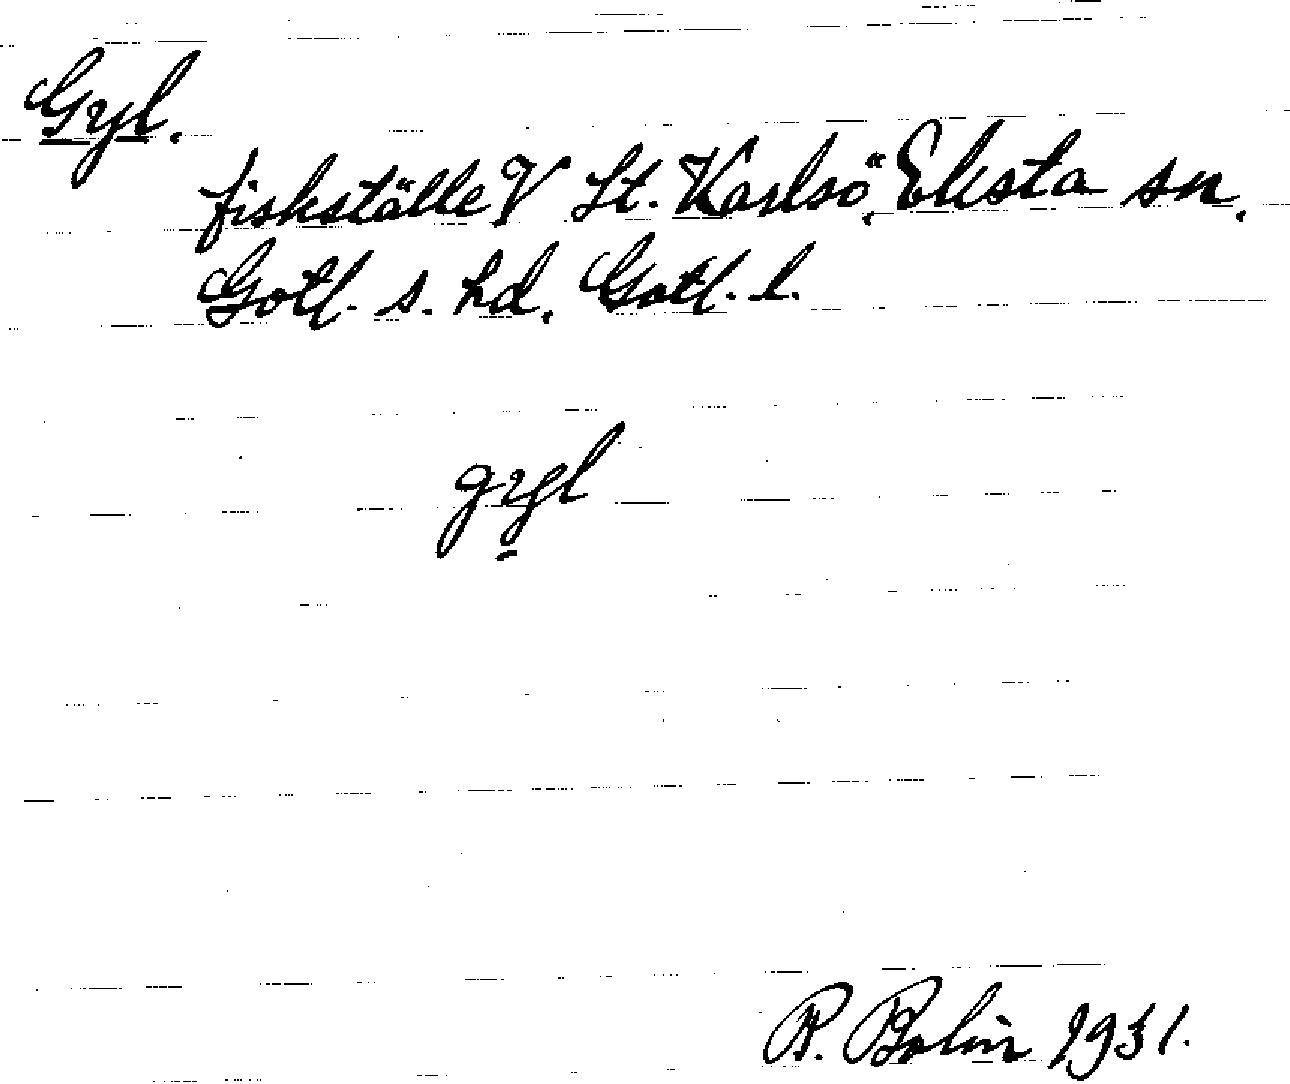 Gyl.
fiskställe V St. Karlsö, Eksta sn.
Gotl. s. hd. Gotl. l.
gyl
R. Bolin 1931.